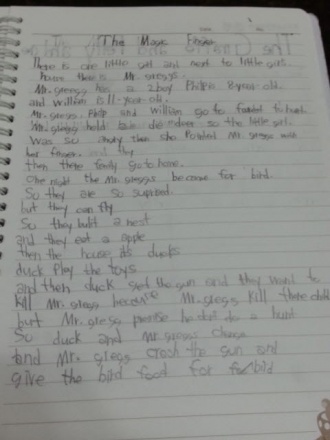 The Magic Finger
There is one little girl and next to little girls
house there is Mr. greggs.
Mr. greegg has a 2boy Philip is 8 year old.
and William is 11-year-old.
Mr. gregg, Philip and William go to forest to hunt.
Mr. gregg hold deer so the little girl.
Was so angry then she Pointed Mr. gregg with
her finger. and they
then there family go to home.
One night the Mr. greggs become for bird.
So they are so suprised.
but they can fly
So they built a nest
and they eat a apple
then the house is ducks
duck Play the toys
and then duck the gun and they want to
kill Mr. gregg because Mr. greggs kill there child
but Mr. gregg he do a hunt
So duck and Mr greggs change
and Mr. gregg crash the gun and
give the bird food for bird